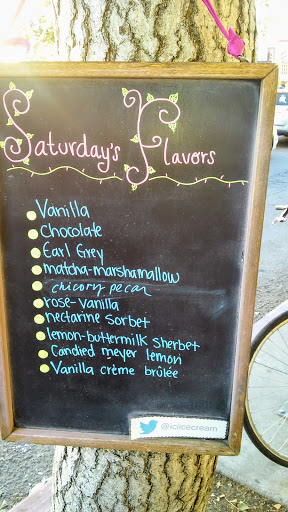 Saturday's Flavors
Vanilla
Chocolate
Earl Grey
matcha-marshmallow
chicory pecan
rose-vanilla
nectarine sorbet
lemon-buttermilk sherbet
Candied meyer lemon
Vanilla crème brûlée
@iciicecream